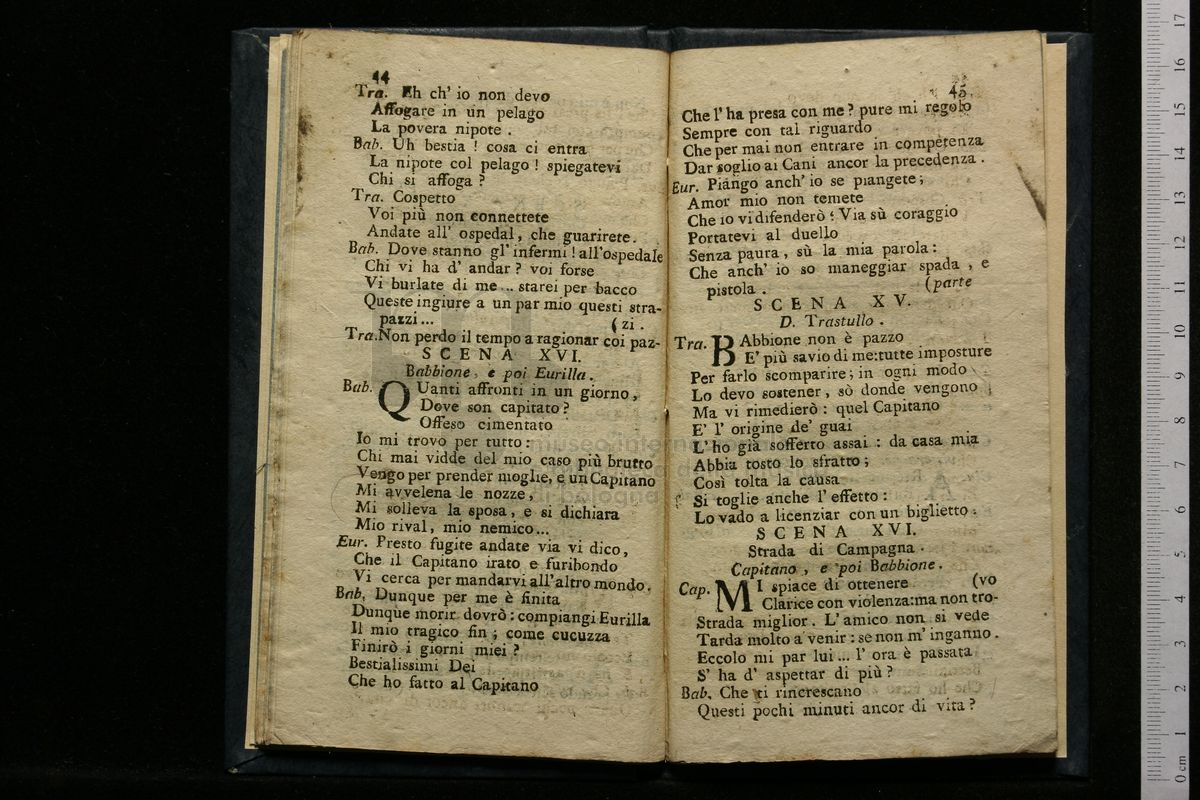 44
Tra. Eh ch' io non devo
Affogare in un pelago
La povera nipote .
Bab. Uh bestia ! cosa ci entra
La nipote col pelago ! spiegatevi
Chi si affoga ?
Tra. Cospetto
Voi più non connettete
Andate all' ospedal, che guarirete.
Bab. Dove stanno gl' infermi ! all'ospedale
Chi vi ha d' andar ? voi forse
Vi burlate di me ... starei per bacco
Queste ingiure a un par mio questi stra-
pazzi ... ( zi .
Tra. Non perdo il tempo a ragionar coi paz-
SCENA XVI.
Babbione, e poi Eurilla.
Bab. QUanti affronti in un giorno,
Dove son capitato ?
Offeso cimentato
Io mi trovo per tutto :
Chi mai vidde del mio caso più brutto
Vengo per prender moglie, e un Capitano
Mi avvelena le nozze,
Mi solleva la sposa, e si dichiara
Mio rival, mio nemico ...
Eur. Presto fugite andate via vi dico,
Che il Capitano irato e furibondo
Vi cerca per mandarvi all'altro mondo.
Bab. Dunque per me è finita
Dunque morir dovrò : compiangi Eurilla
Il mio tragico fin ; come cucuzza
Finirò i giorni miei ?
Bestialissimi Dei
Che ho fatto al Capitano
45
Che l' ha presa con me ? pure mi regolo
Sempre con tal riguardo
Che per mai non entrare in competenza
Dar soglio ai Cani ancor la precedenza .
Eur. Piango anch' io se piangete ;
Amor mio non temete
Che io vi difenderò : Via sù coraggio
Portatevi al duello
Senza paura, sù la mia parola :
Che anch' io so maneggiar spada , e
pistola . (parte
SCENA XV.
D. Trastullo .
Tra. BAbbione non è pazzo
E' più savio di me: tutte imposture
Per farlo scomparire; in ogni modo
Lo devo sostener, sò donde vengono
Ma vi rimedierò : quel Capitano
E' l' origine de' guai
L' ho già sofferto assai : da casa mia
Abbia tosto lo sfratto ;
Così tolta la causa
Si toglie anche l' effetto :
Lo vado a licenziar con un biglietto .
SCENA XVI.
Strada di Campagna .
Capitano , e poi Babbione .
Cap. MI spiace di ottenere (vo
Clarice con violenza: ma non tro-
Strada miglior. L' amico non si vede
Tarda molto a venir : se non m' inganno .
Eccolo mi par lui ... l' ora è passata
S' ha d' aspettar di più ?
Bab. Che ti rincrescano
Questi pochi minuti ancor di vita ?
museo internazionale
di bologna
0 cm 1 2 3 4 5 6 7 8 9 10 11 12 13 14 15 16 17